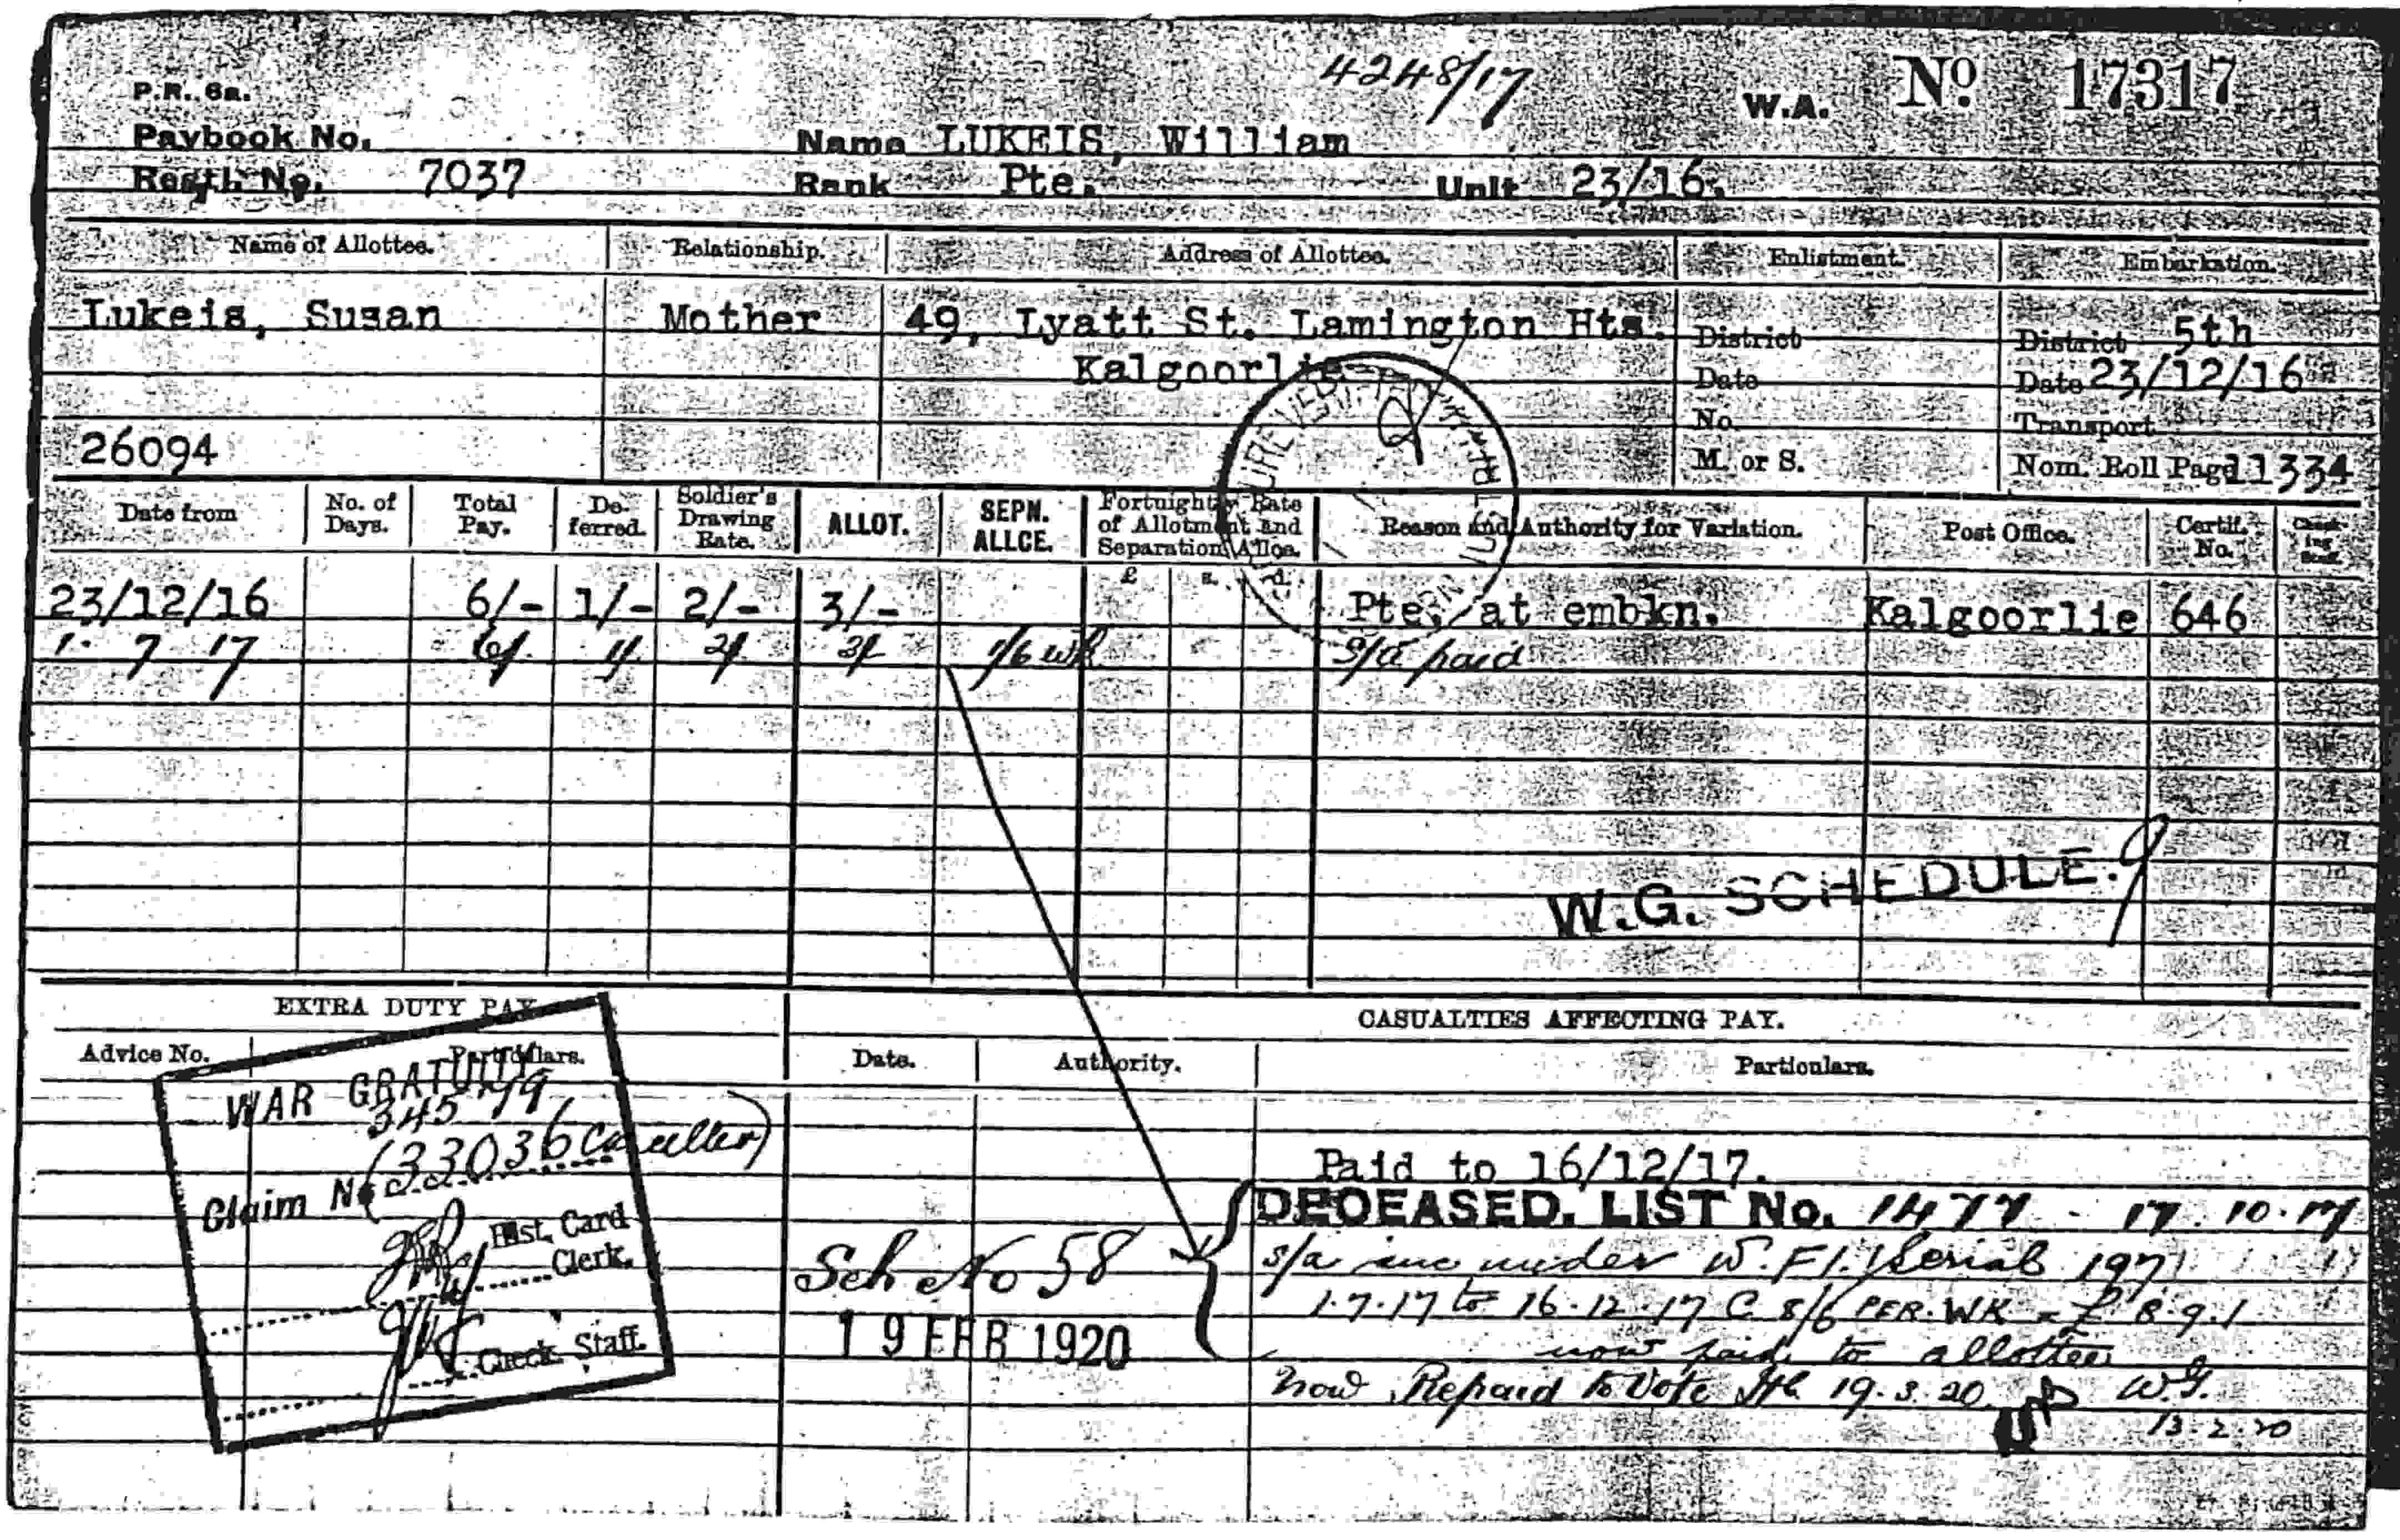 4248/17
P.R. 6a.
W.A. No. 17317
Paybook No.
Name LUKEIS, William
Regtl. No. 7037 Rank Pte. Unit 23/16.
Name of Allottee. Relationship. Address of Allottee. Enlistment. Embarkation.
Lukeis, Susan Mother 49, Lyatt St. Lamington Hts. District District 5th
Kalgoorlie Date Date 23/12/16
No. Transport
26094 M. or S. Nom. Roll Page 11334
Date from No. of Days. Total Pay. De-ferred. Soldier's Drawing Rate. ALLOT. SEPN. ALLCE. Fortnightly Rate of Allotment and Separation Allce. Reason and Authority for Variation. Post Office. Certif. No. Check-ing Staff.
£ s. d.
23/12/16 6/- 1/- 2/- 3/- Pte. at embkn. Kalgoorlie 646
1. 7 17 6/ 1/ 2/ 3/ 1/6 wk S/a paid
W.G. SCHEDULE.
EXTRA DUTY PAY CASUALTIES AFFECTING PAY.
Advice No. Particulars. Date. Authority. Particulars.
WAR GRATUITY
34579
(33036
Claim No
Hist. Card
Clerk.
Check Staff.
Paid to 16/12/17.
DECEASED. LIST No. 1477 - 17.10.17
Sch No 58 s/a inc under W.F1. Serial 197
1.7.17 to 16.12.17 @ 8/6 PER. WK = £ 8.9.1
19 FEB 1920 now paid to allottee
now Repaid to Vote 19.3.20 W.G.
13.2.20